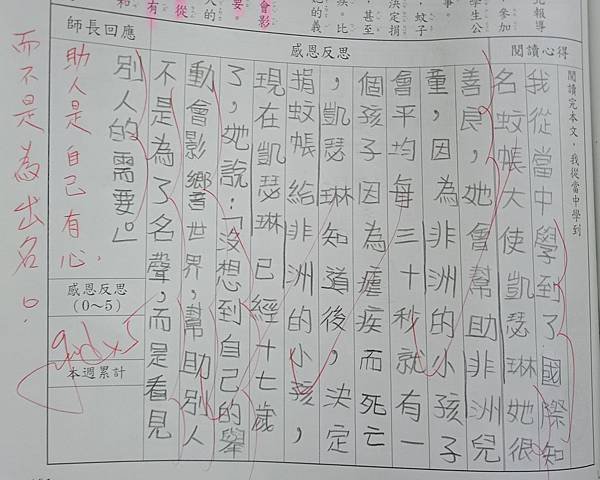 北報導
參加
學生公
事。
，蚊子
決定捐
，甚至
疾。比
她的義
會影
要。
人的
從
有
和
閱讀心得
感恩反思
師長回應
閱讀完本文，我從當中學到
我從當中學到了國際知
名蚊帳大使凱瑟琳她很
善良，她會幫助非洲兒
童，因為非洲的小孩子
會平均每三十秒就有一
個孩子因為瘧疾而死亡
，凱瑟琳知道後，決定
捐蚊帳給非洲的小孩，
現在凱瑟琳已經十七歲
了，她說：「沒想到自己的舉
動會影響世界，幫助別人
不是為了名聲，而是看見
別人的需要。」
助人是自己有心，
而不是為出名。
感恩反思
（0～5）
good x5
本週累計